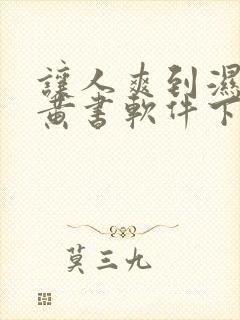 讓人爽到濕
黃書軟件下
莫三九